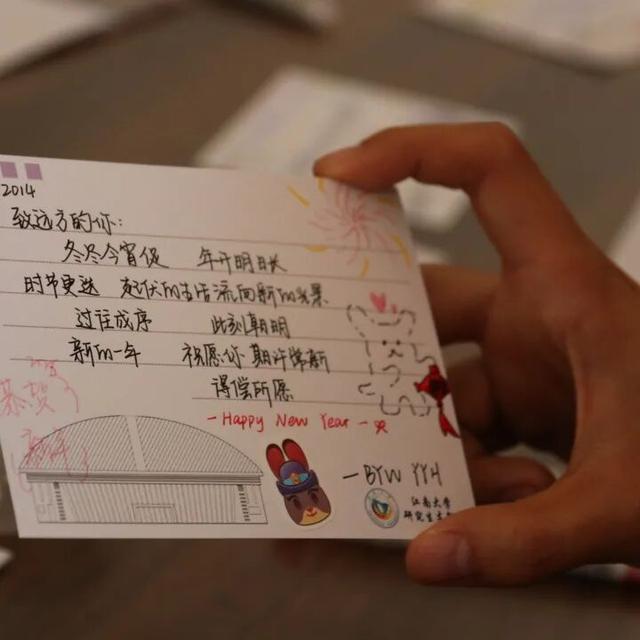 2014
致远方的你:
冬尽今宵促 年开明日长
时节更迭 起伏的生活流向新的发条
过往成序 此刻朝明
新的一年 祝愿你 期许常新
得偿所愿
- Happy New Year -
恭贺
新年
— BYW YYH
江南大学
研究生